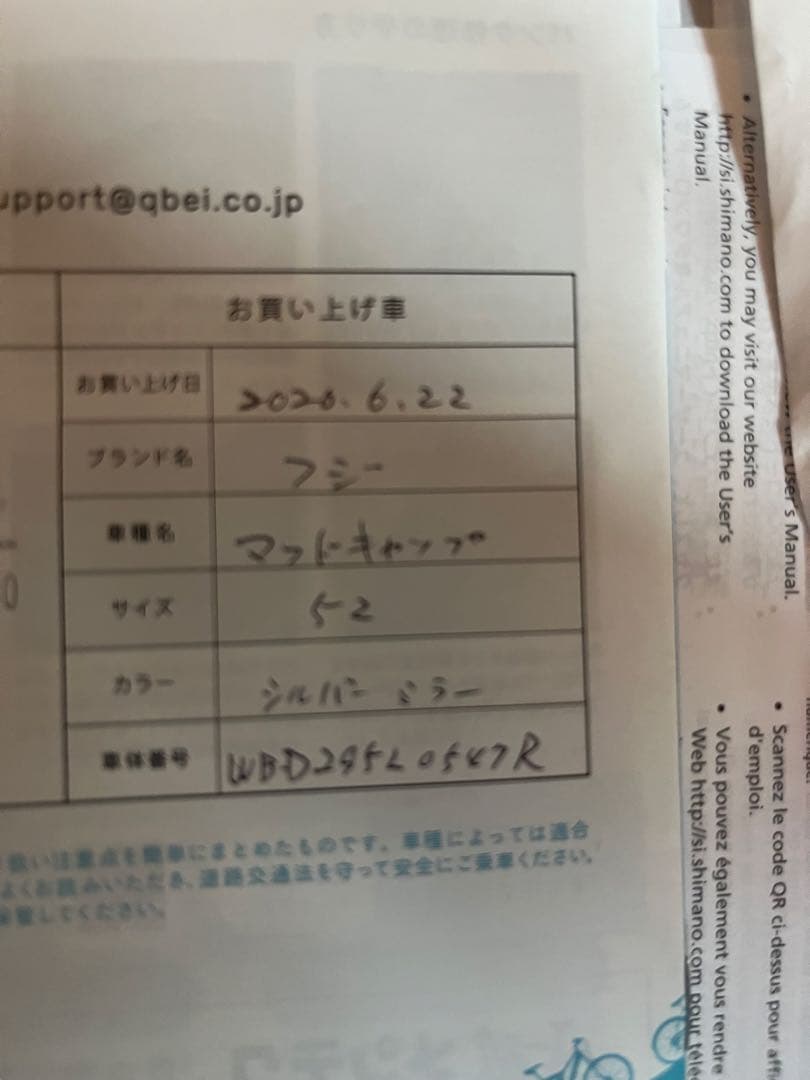 upport@qbei.co.jp
お買い上げ車
お買い上げ日 2020.6.22
ブランド名 フジー
車種名 マットキャップ
サイズ 52
カラー シルバーミラー
車体番号 WBD295L0547R
扱い注意点を簡単にまとめたものです。車種によっては適合
よくお読みいただき、道路交通法を守って安全にご乗車ください。
管してください。
• Alternatively, you may visit our website
http://si.shimano.com to download the User's
Manual.
the User's Manual.
• Scannez le code QR ci-dessus pour affi
d'emploi.
• Vous pouvez également vous rendre
Web http://si.shimano.com pour télé